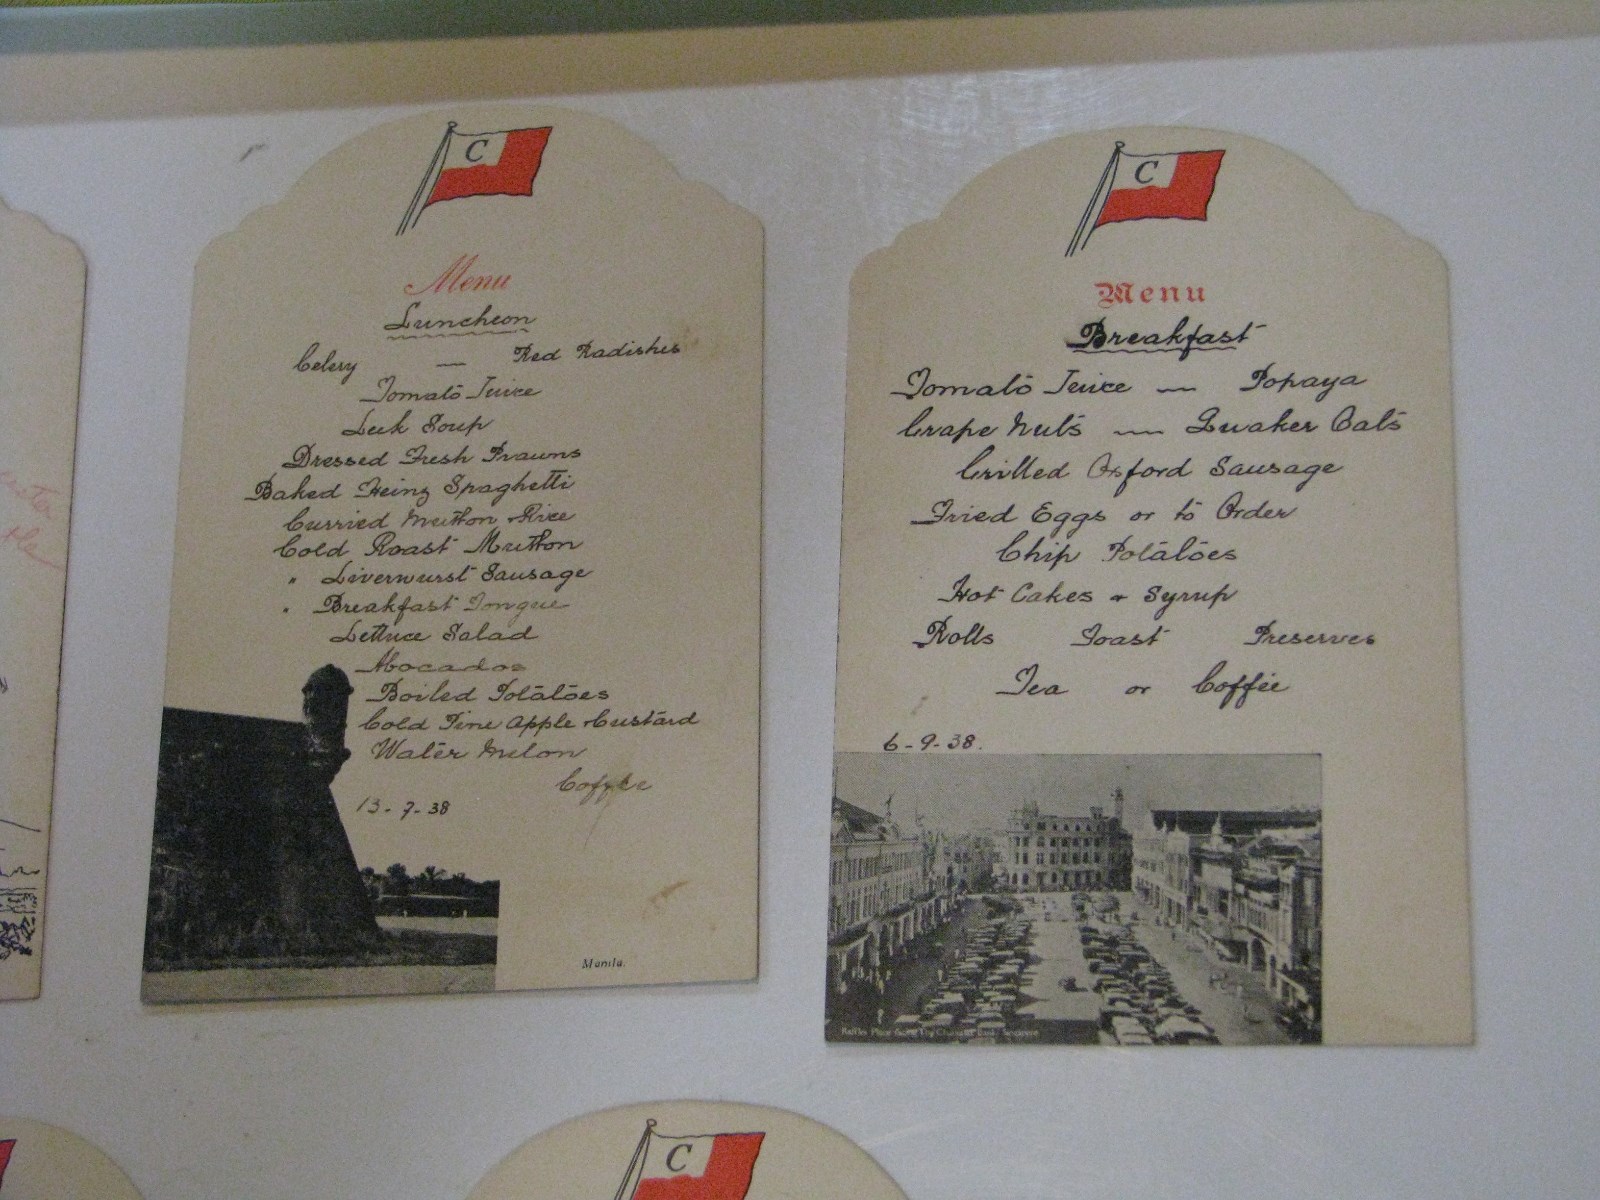 C
Menu
Luncheon
Celery — Red Radishes
Tomato Juice
Leek Soup
Dressed Fresh Prawns
Baked Heinz Spaghetti
Curried Mutton & Rice
Cold Roast Mutton
" Liverwurst Sausage
" Breakfast Tongue
Lettuce Salad
Abocados
Boiled Potatoes
Cold Pine Apple Custard
Water Melon
Coffee
13-7-38
Manila.
C
Menu
Breakfast
Tomato Juice — Popaya
Grape Nuts — Quaker Oats
Grilled Oxford Sausage
Fried Eggs or to Order
Chip Potatoes
Hot Cakes & Syrup
Rolls Toast Preserves
Tea or Coffee
6-9-38.
Raffles Place Singapore
C